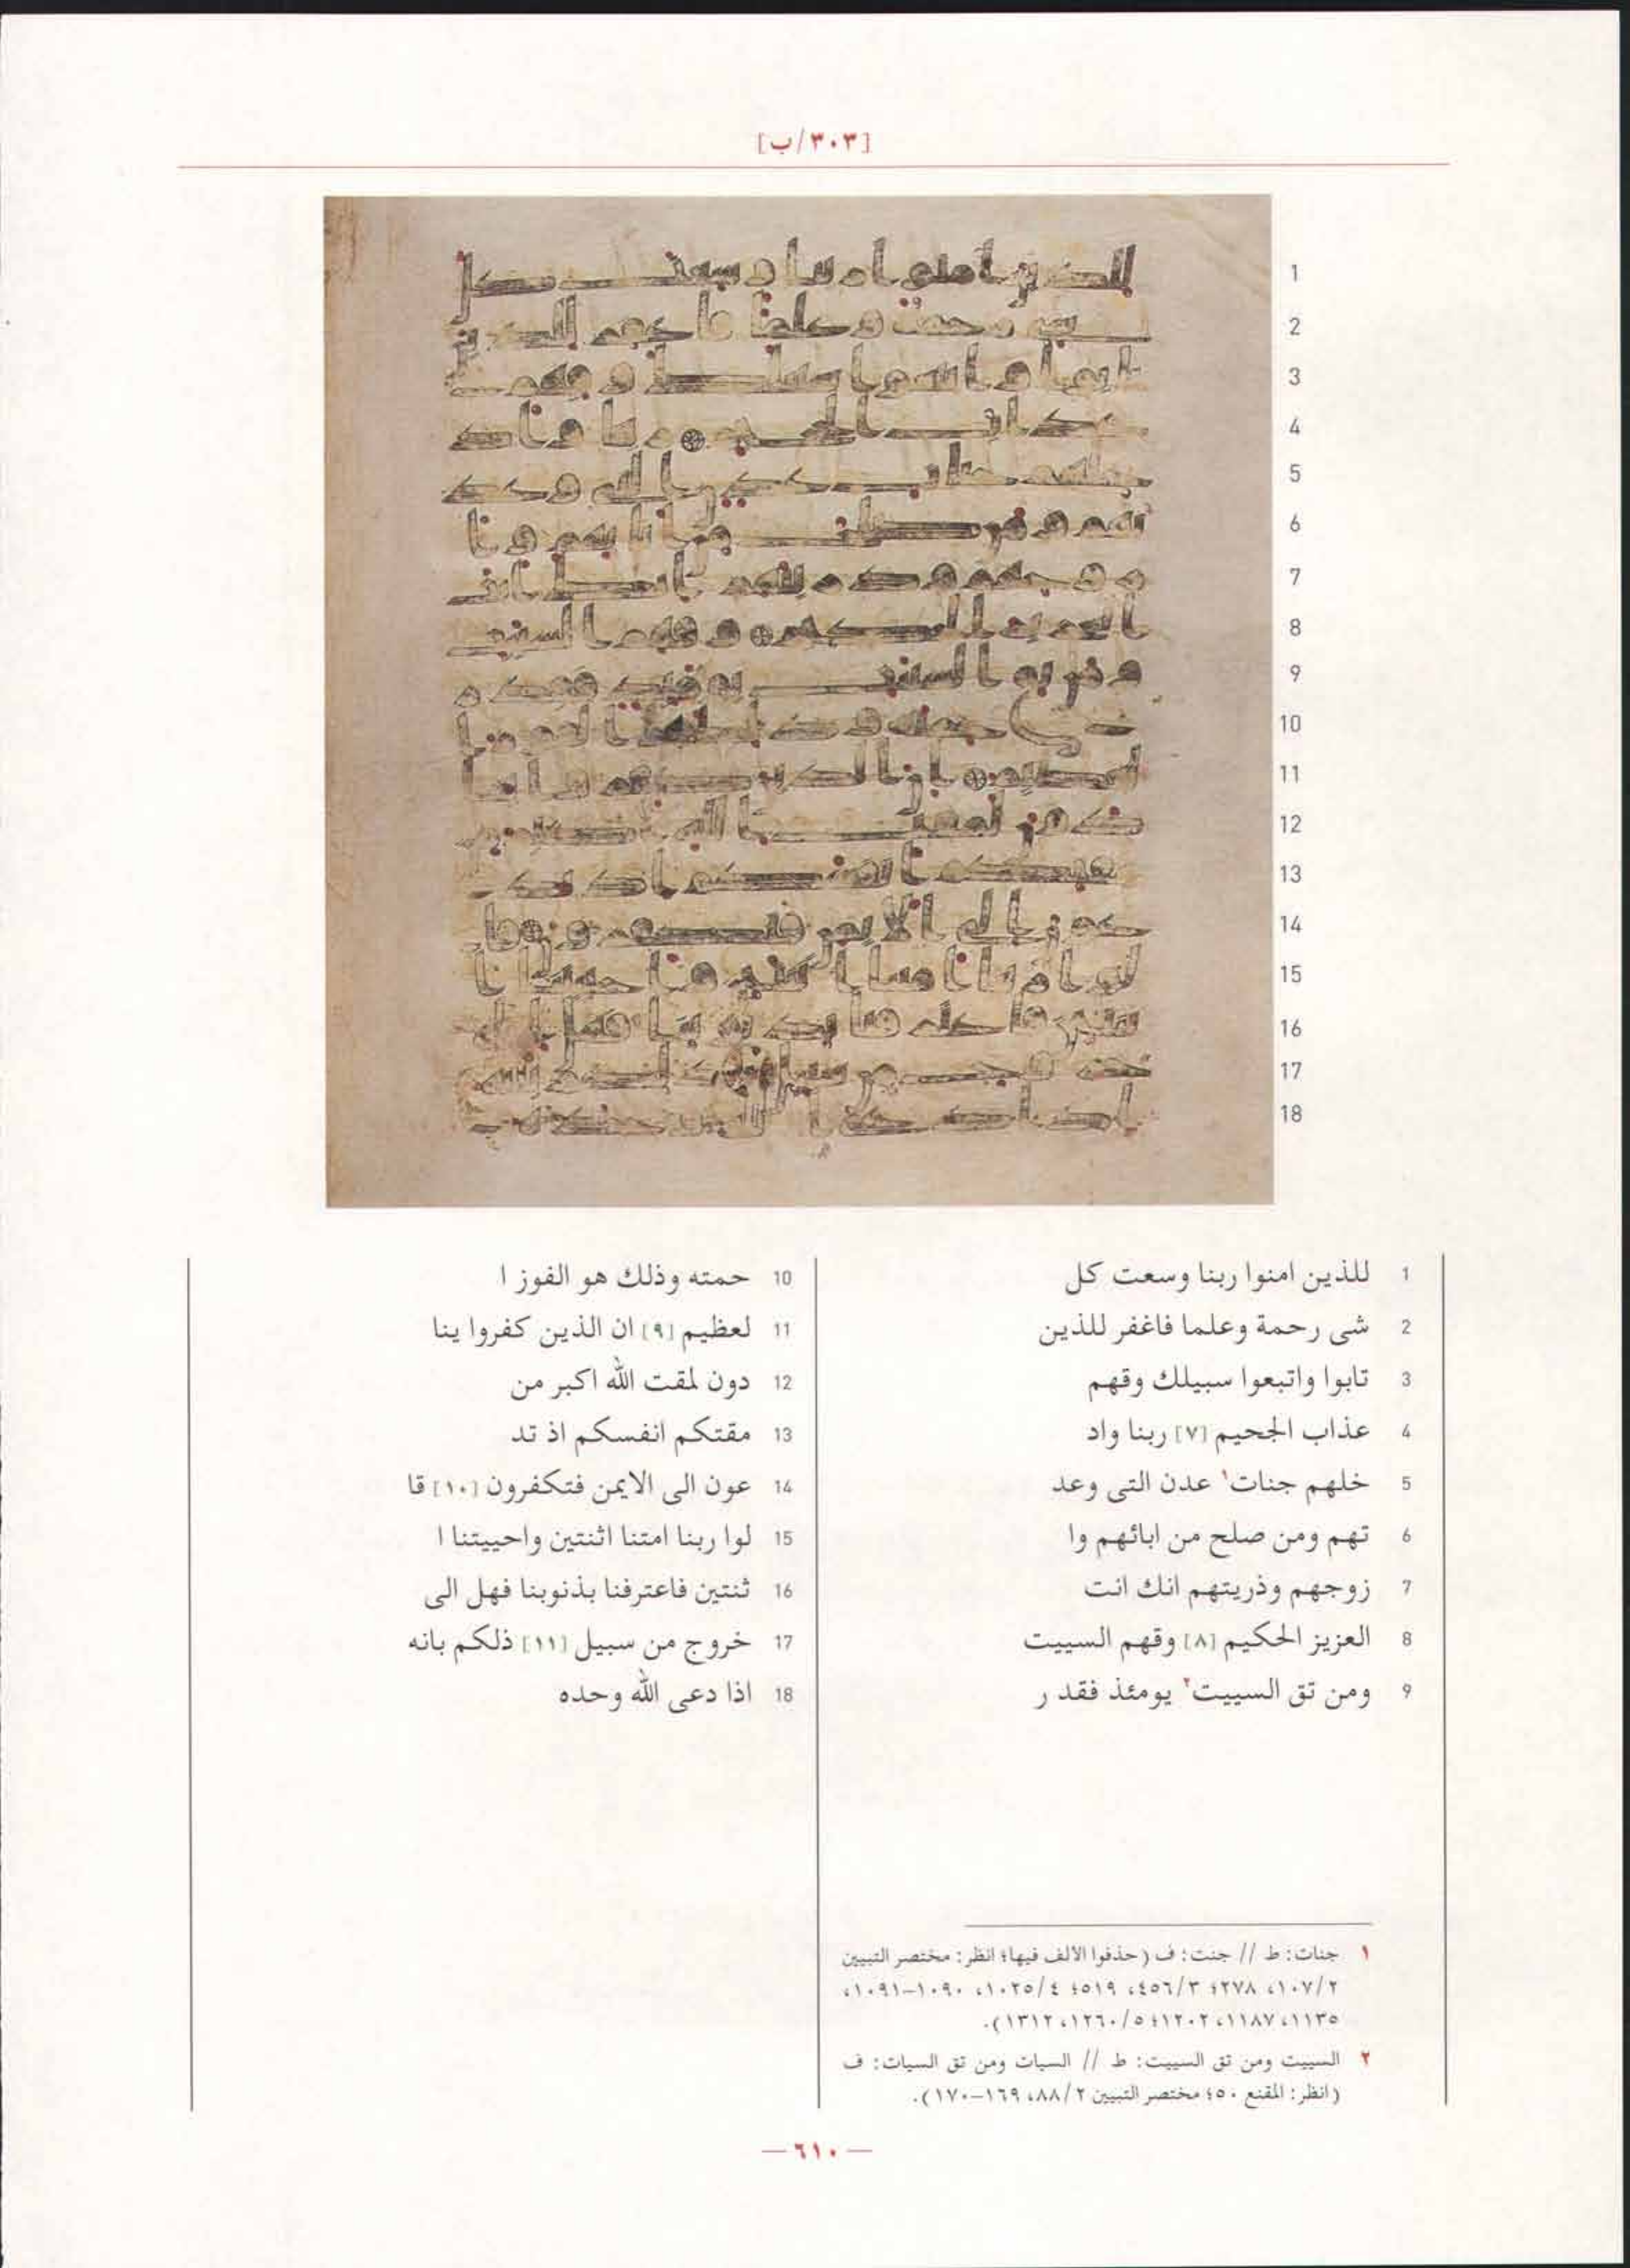 [٣٠٣/ب]
1 للذين امنوا ربنا وسعت كل
2 شى رحمة وعلما فاغفر للذين
3 تابوا واتبعوا سبيلك وقهم
4 عذاب الجحيم [٧] ربنا واد
5 خلهم جنات١ عدن التى وعد
6 تهم ومن صلح من ابائهم وا
7 زوجهم وذريتهم انك انت
8 العزيز الحكيم [٨] وقهم السييت
9 ومن تق السييت٢ يومئذ فقد ر
10 حمته وذلك هو الفوز ا
11 لعظيم [٩] ان الذين كفروا ينا
12 دون لمقت الله اكبر من
13 مقتكم انفسكم اذ تد
14 عون الى الايمن فتكفرون [١٠] قا
15 لوا ربنا امتنا اثنتين واحييتنا ا
16 ثنتين فاعترفنا بذنوبنا فهل الى
17 خروج من سبيل [١١] ذلكم بانه
18 اذا دعى الله وحده
١ جنات: ط // جنت: ف (حذفوا الالف فيها؛ انظر: مختصر التبيين
١٠٧/٢، ٢٧٨؛ ٤٥٦/٣، ٥١٩؛ ١٠٢٥/٤، ١٠٩٠–١٠٩١،
١١٣٥، ١١٨٧، ١٢٠٢؛ ١٢٦٠/٥، ١٣١٢).
٢ السييت ومن تق السييت: ط // السيات ومن تق السيات: ف
(انظر: المقنع ٥٠؛ مختصر التبيين ٨٨/٢، ١٦٩–١٧٠).
— ٦١٠ —